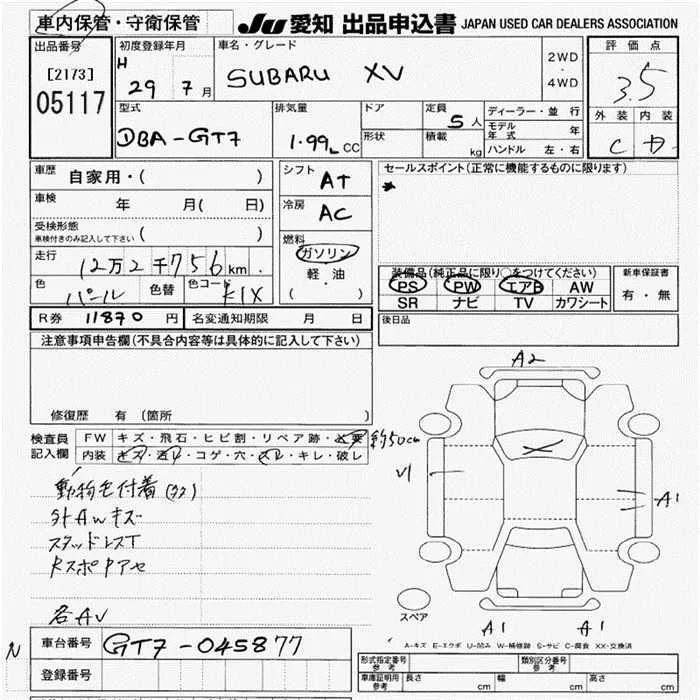 車内保管・守衛保管
JU 愛知 出品申込書 JAPAN USED CAR DEALERS ASSOCIATION
出品番号
[2173]
05117
初度登録年月
H 29 7 月
車名・グレード
SUBARU XV
2WD
・
4WD
評価点
3.5
外装 内装
C
型式
DBA-GT7
排気量
1.99L CC
ドア
形状
定員
5 人
積載
kg
ディーラー・並行
モデル年式 年
ハンドル 左・右
車歴
自家用・( )
車検
年 月( 日)
受検形態
車検付きのみ記入して下さい ( )
走行
12万2千756km
色
パール
色替
色コード
K1X
シフト
AT
冷房
AC
燃料
ガソリン
軽・油
( )
セールスポイント(正常に機能するものに限ります)
装備品(純正品に限り○をつけてください)
PS PW エアB AW
SR ナビ TV カワシート
新車保証書
有・無
R券 11870 円
名変通知期限 月 日
後日品
注意事項申告欄(不具合内容等は具体的に記入して下さい)
修復歴 有(箇所 )
検査員
記入欄
FW キズ・飛石・ヒビ割・リペア跡・メ要
約50cm
内装 キズ・汚レ・コゲ・穴・スレ・キレ・破レ
動物毛付着
外AWキズ
スタッドレスT
各AV
A2
A1
A1
A1
スペア
A-キズ E-エクボ U-凹み W-補修跡 S-サビ C-腐食 XX-交換済
N
車台番号
GT7-045877
登録番号
形式指定番号
参考
類別区分番号
参考
車庫証明用
参考
長さ cm
幅 cm
高さ cm